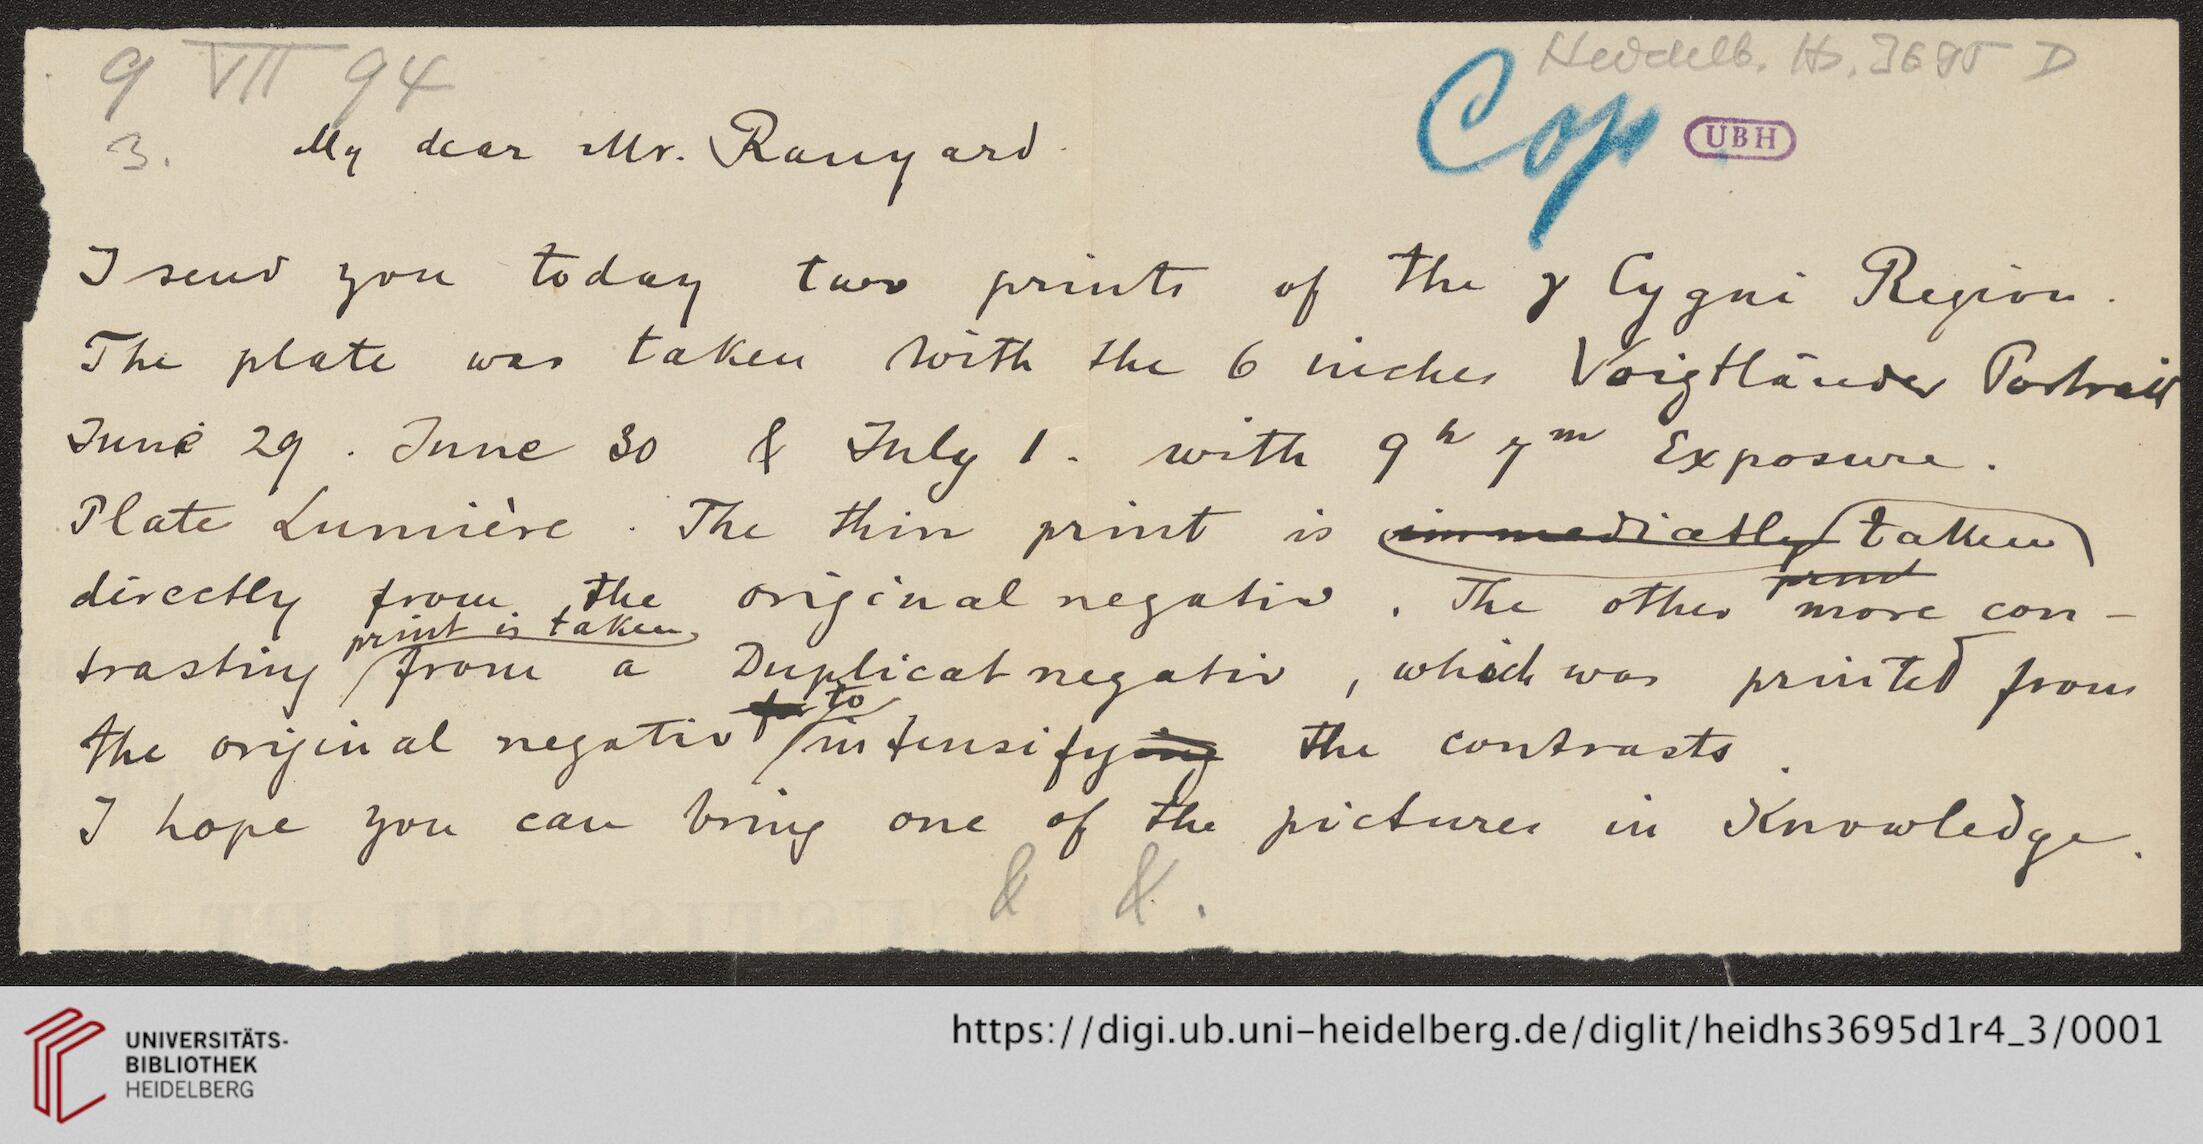 9 VII 94
Heidelb. Hs. 3695 D
Cop
UBH
3.
My dear Mr. Ranyard.
I send you today two prints of the γ Cygni Region.
The plate was taken with the 6 inches Voigtländer Portrait
June 29. June 30 & July 1. with 9h 7m Exposure.
Plate Lumière. The thin print is immediatly taken
directly from the original negativ. The other print more con-
trasting print is taken from a Duplicat negativ, which was printed from
the original negativ for to intensifying the contrasts.
I hope you can bring one of the pictures in Knowledge.
& &.
UNIVERSITÄTS-
BIBLIOTHEK
HEIDELBERG
https://digi.ub.uni-heidelberg.de/diglit/heidhs3695d1r4_3/0001